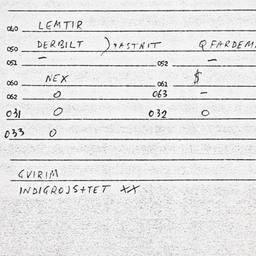 040 LEMTIR
050 DERBILT ) PASTNIT Q FARDEM
051 – 052 –
050 NEX 061 $
062 0 063 –
031 0 032 0
033 0
GVIRIM
INDIGROJSTTET XX